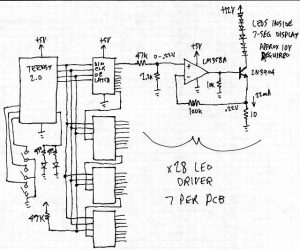 +12V
LEDS INSIDE
7-SEG DISPLAY
APPROX 10V
REQUIRED
+5V
+5V
+5V
TEENSY
2.0
DIN
CLK
LATCH
47K
0-.22V
LM358A
2N3904
10K
22mA
100K
.22V
10
47K
x28 LED
DRIVER
7 PER PCB